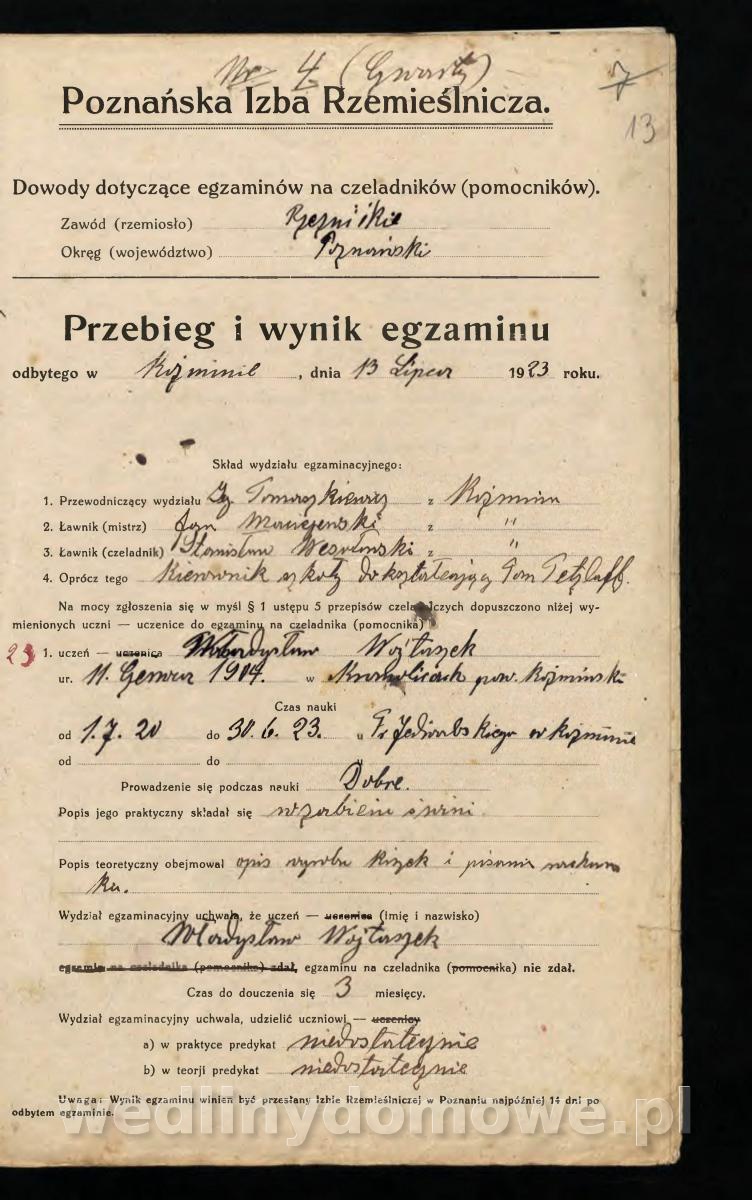 Nr 4 (Czwarty)
7
13
Poznańska Izba Rzemieślnicza.
Dowody dotyczące egzaminów na czeladników (pomocników).
Zawód (rzemiosło) Rzeźnikie
Okręg (województwo) Poznański
Przebieg i wynik egzaminu
odbytego w Koźminie, dnia 13 Lipca 1923 roku.
Skład wydziału egzaminacyjnego:
1. Przewodniczący wydziału Ig. Tomaszkiewicz z Koźmina
2. Ławnik (mistrz) Jan Maciejewski z "
3. Ławnik (czeladnik) Stanisław Wesołowski z "
4. Oprócz tego Kierownik szkoły dokształcającej Pan Tetzlaff.
Na mocy zgłoszenia się w myśl § 1 ustępu 5 przepisów czeladniczych dopuszczono niżej wy-
mienionych uczni — uczenice do egzaminu na czeladnika (pomocnika)
23 1. uczeń — uczenica Władysław Wojtaszek
ur. 11. Czerwca 1904. w pow. Koźmiński
Czas nauki
od 1.7. 20 do 30. 6. 23. u Fr Jedwabskiego w Koźminie
od do u
Prowadzenie się podczas nauki Dobre.
Popis jego praktyczny składał się w zabiciu świni
Popis teoretyczny obejmował opis wyrobu kiszek i pisania rachun
ku.
Wydział egzaminacyjny uchwala, że uczeń — uczenica (imię i nazwisko)
Władysław Wojtaszek
egzamin na czeladnika (pomocnika) zdał, egzaminu na czeladnika (pomocnika) nie zdał.
Czas do douczenia się 3 miesięcy.
Wydział egzaminacyjny uchwala, udzielić uczniowi — uczenicy
a) w praktyce predykat niedostatecznie
b) w teorji predykat niedostatecznie
Uwaga: Wynik egzaminu winien być przesłany Izbie Rzemieślniczej w Poznaniu najpóźniej 14 dni po
odbytem egzaminie.
wedlinydomowe.pl